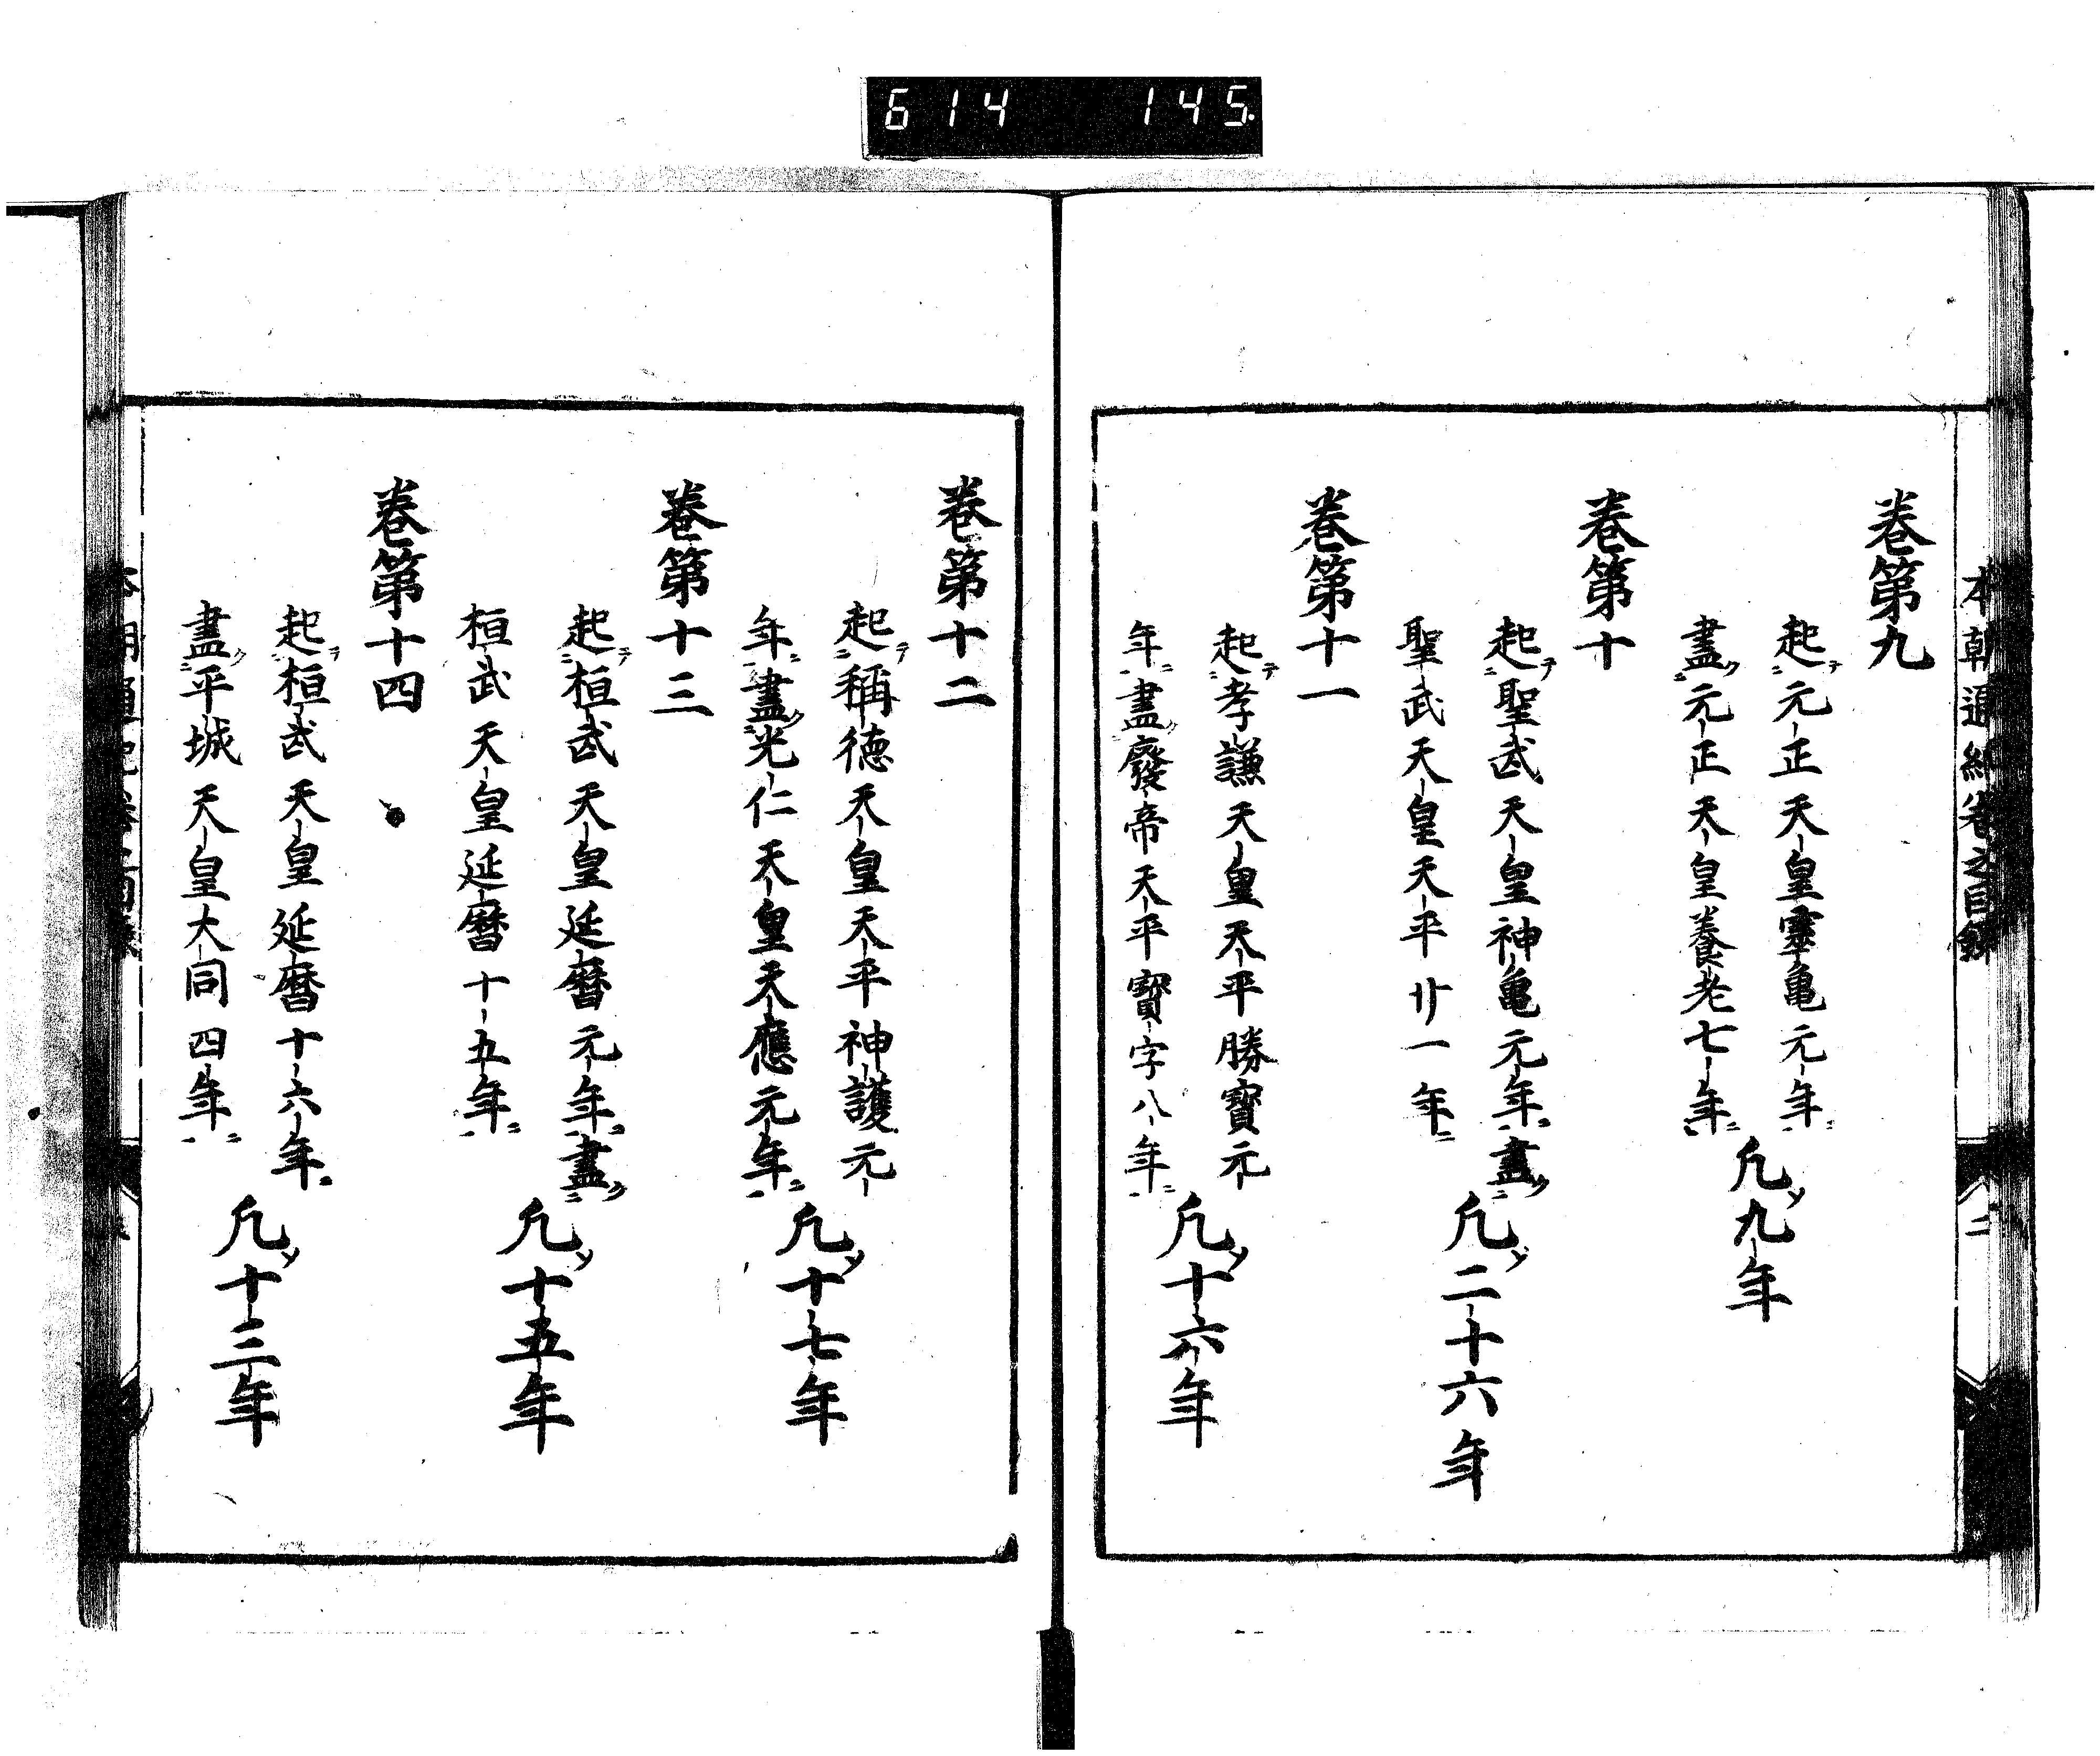 614 145
本朝通紀卷之目録
二
卷第九
起元正天皇靈亀元年
盡元正天皇養老七年
凢九年
卷第十
起聖武天皇神亀元年盡
聖武天皇天平廿一年
凢二十六年
卷第十一
起孝謙天皇天平勝寶元
年盡廢帝天平寶字八年
凢十六年
卷第十二
起稱德天皇天平神護元
年盡光仁天皇天應元年
凢十七年
卷第十三
起桓武天皇延暦元年盡
桓武天皇延暦十五年
凢十五年
卷第十四
起桓武天皇延暦十六年
盡平城天皇大同四年
凢十三年